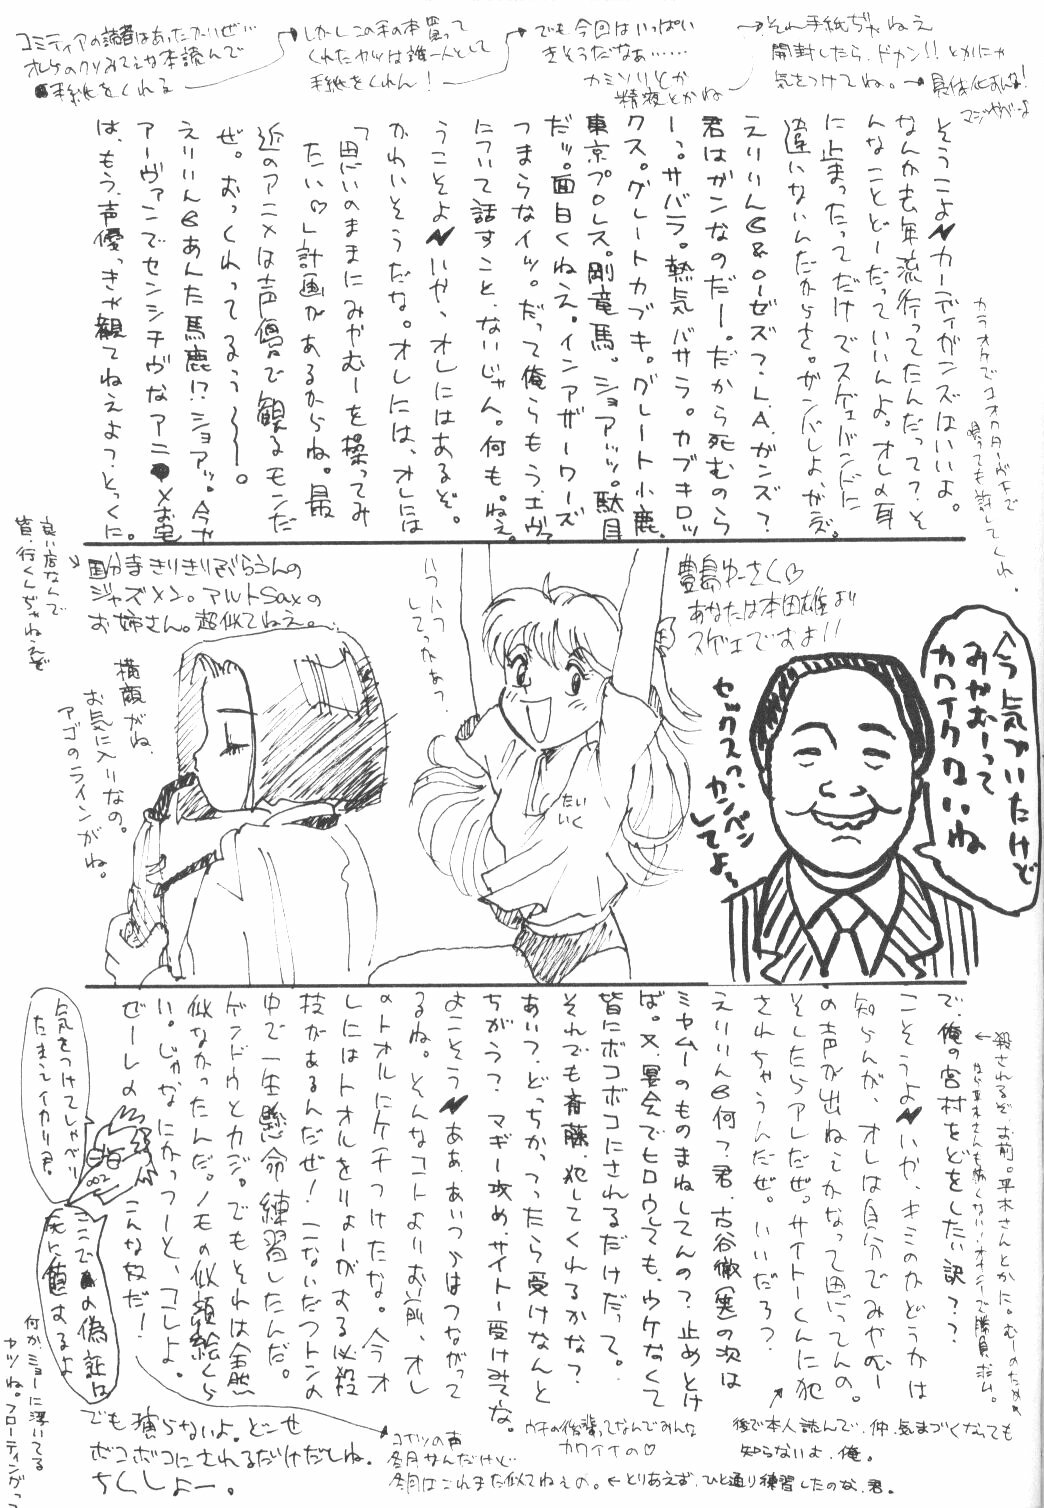 コミティアの読者はあったけーぜ…
オレらのクソみてえな本読んで
手紙をくれる
→しかしこの手の本買って
くれたヤツは誰一人として
手紙をくれん!
→でも今回はいっぱい
きそうだなぁ……
カミソリとか
精液とかね
→それ手紙ぢゃねえ
開封したら、ドカン!!とかにゃ
気をつけてね。→具体化すんな!
マジやべーよ
そうこよ カーディガンズはいいよ。
なんか去年流行ってたんだって?そ
んなことどーだっていいんよ。オレの耳
に止まったってだけでスゲェバンドに
違いないんだからさ。ガンバレよ、が
えりりん&ローゼズ?L.A.ガンズ?
君はガンなのだー。だから死むのら
ーっ。サバラ。熱気バサラ。カブキロッ
クス。グレートカブキ。グレート小鹿。
東京プロレス。剛竜馬。ショアッッ。駄目
だッ。面白くねえ。インアザーワーズ
つまらなイッ。だって俺らもう、エヴァ
について話すこと、ないじゃん。何も。ねえ。
うこそよ いや、オレにはあるぞ。
かわいそうだな。オレには、オレには
「思いのままにみやむーを操ってみ
たい♡」計画があるからね。最
近のアニメは声優で観るモンだ
ぜ。おっくれってるぅ〜〜。
えりりん あんた馬鹿!?ショアッ。今や
アーヴァンでセンシチヴなアニメお宅
は、もう、声優っきゃ観てねぇよっ、とっくに。
カラオケで
唄っても許してくれ。
良い店なんで
皆、行くんぢゃねえぞ
国分寺きりきりぶらうんの
ジャズメン。アルトSaxの
お姉さん。超似てねえ。
横顔がね、
お気に入りなの。
アゴのラインがね。
いつハフ
してっかぁっ
たいいく
豊島ゆーさく♡
あなたは本田雄より
スゲェですよ!!
セックスっ、カンペン
してよぉ
今気づいたけど
みやむーって
カワイクないね
で、俺の宮村をどをしたい訳??
こそうよ いや、キミのかどうかは
知らんが、オレは自分でみやむー
の声が出ねぇかなって思ってんの。
そしたらアレだぜ。サイトーくんに犯
されちゃうんだぜ。いいだろ?
えりりん 何?君、古谷徹(裏)の次は
ミヤムーのものまねしてんの?止めとけ
ば。又、宴会でヒロウしても、ウケなくて
皆にボコボコにされるだけだって。
それでも斉藤、犯してくれるかな?
あいつ、どっちかっつったら受けなんと
ちがう?マギー攻め、サイトー受けみてな。
よこそう ああ、あいつらはつながって
るね。そんなコトよりお前、オレ
のトオルにケチつけたな。今ラオ
レにはトオルをりょーがする必殺
技があるんだぜ!こないだフトンの
中で一生懸命練習したんだ。
ゲンドウとカジ。でもそれは全然
似なかったんだ。ノモの似顔絵くら
い。じゃなにかっつーと、コレよ。
ぜーレの こんな奴だー!
殺されるぞ、お前。平木さんとかに。むーのためめ
←なら平木さんも怖くないオイシーで勝負、ポム。
気をつけてしゃべり
たまえイカリ君。
ここでの偽証は
死に値するよ
何かミョーに浮いてる
ヤツね。フローティングっつ
でも演らないよ。どーせ
ボコボコにされるだけだしね。
ちくしょー。
コイツの声
冬月なんだけど
冬月はこれまた似てねえの。←とりあえず、ひと通り練習したのな、君。
ウチの後輩ってなんでみんな
カワイイの♡
後で本人読んで、仲、気まづくなっても
知らないよ、俺。